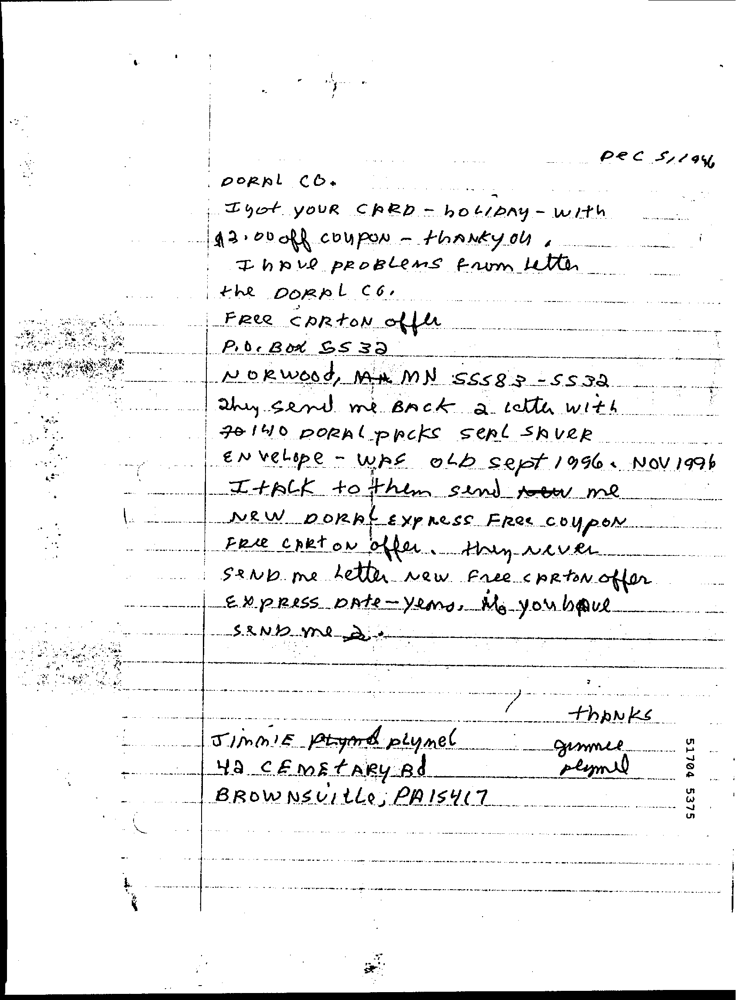 Dec 5, 1996
DORAL CO.
I got YOUR CARD - hOLIDAY - with
$2.00 off COUPON - thANKyou.
I hAVE PROBLEMS From Letter
the DORAL CO.
FREE CARTON offer
P.O. BOX 5532
NORWOOD, MN 55583-5532
they send me BACK a letter with
140 DORAL PACKS SEAL SAVER
ENVELOPE - WAS OLD Sept 1996. NOV 1996
I tALK to them send me
NEW DORAL EXPRESS FREE COUPON
FREE CARTON offer. they NEVER
SEND me Letter NEW FREE CARTON offer
EXPRESS DATE - years. if you have
SEND me 2.
thANKS
JIMMIE PLYMEL
42 CEMETARY Rd
BROWNSVILLE, PA 15417
Jimmie
Plymel
51704 5375